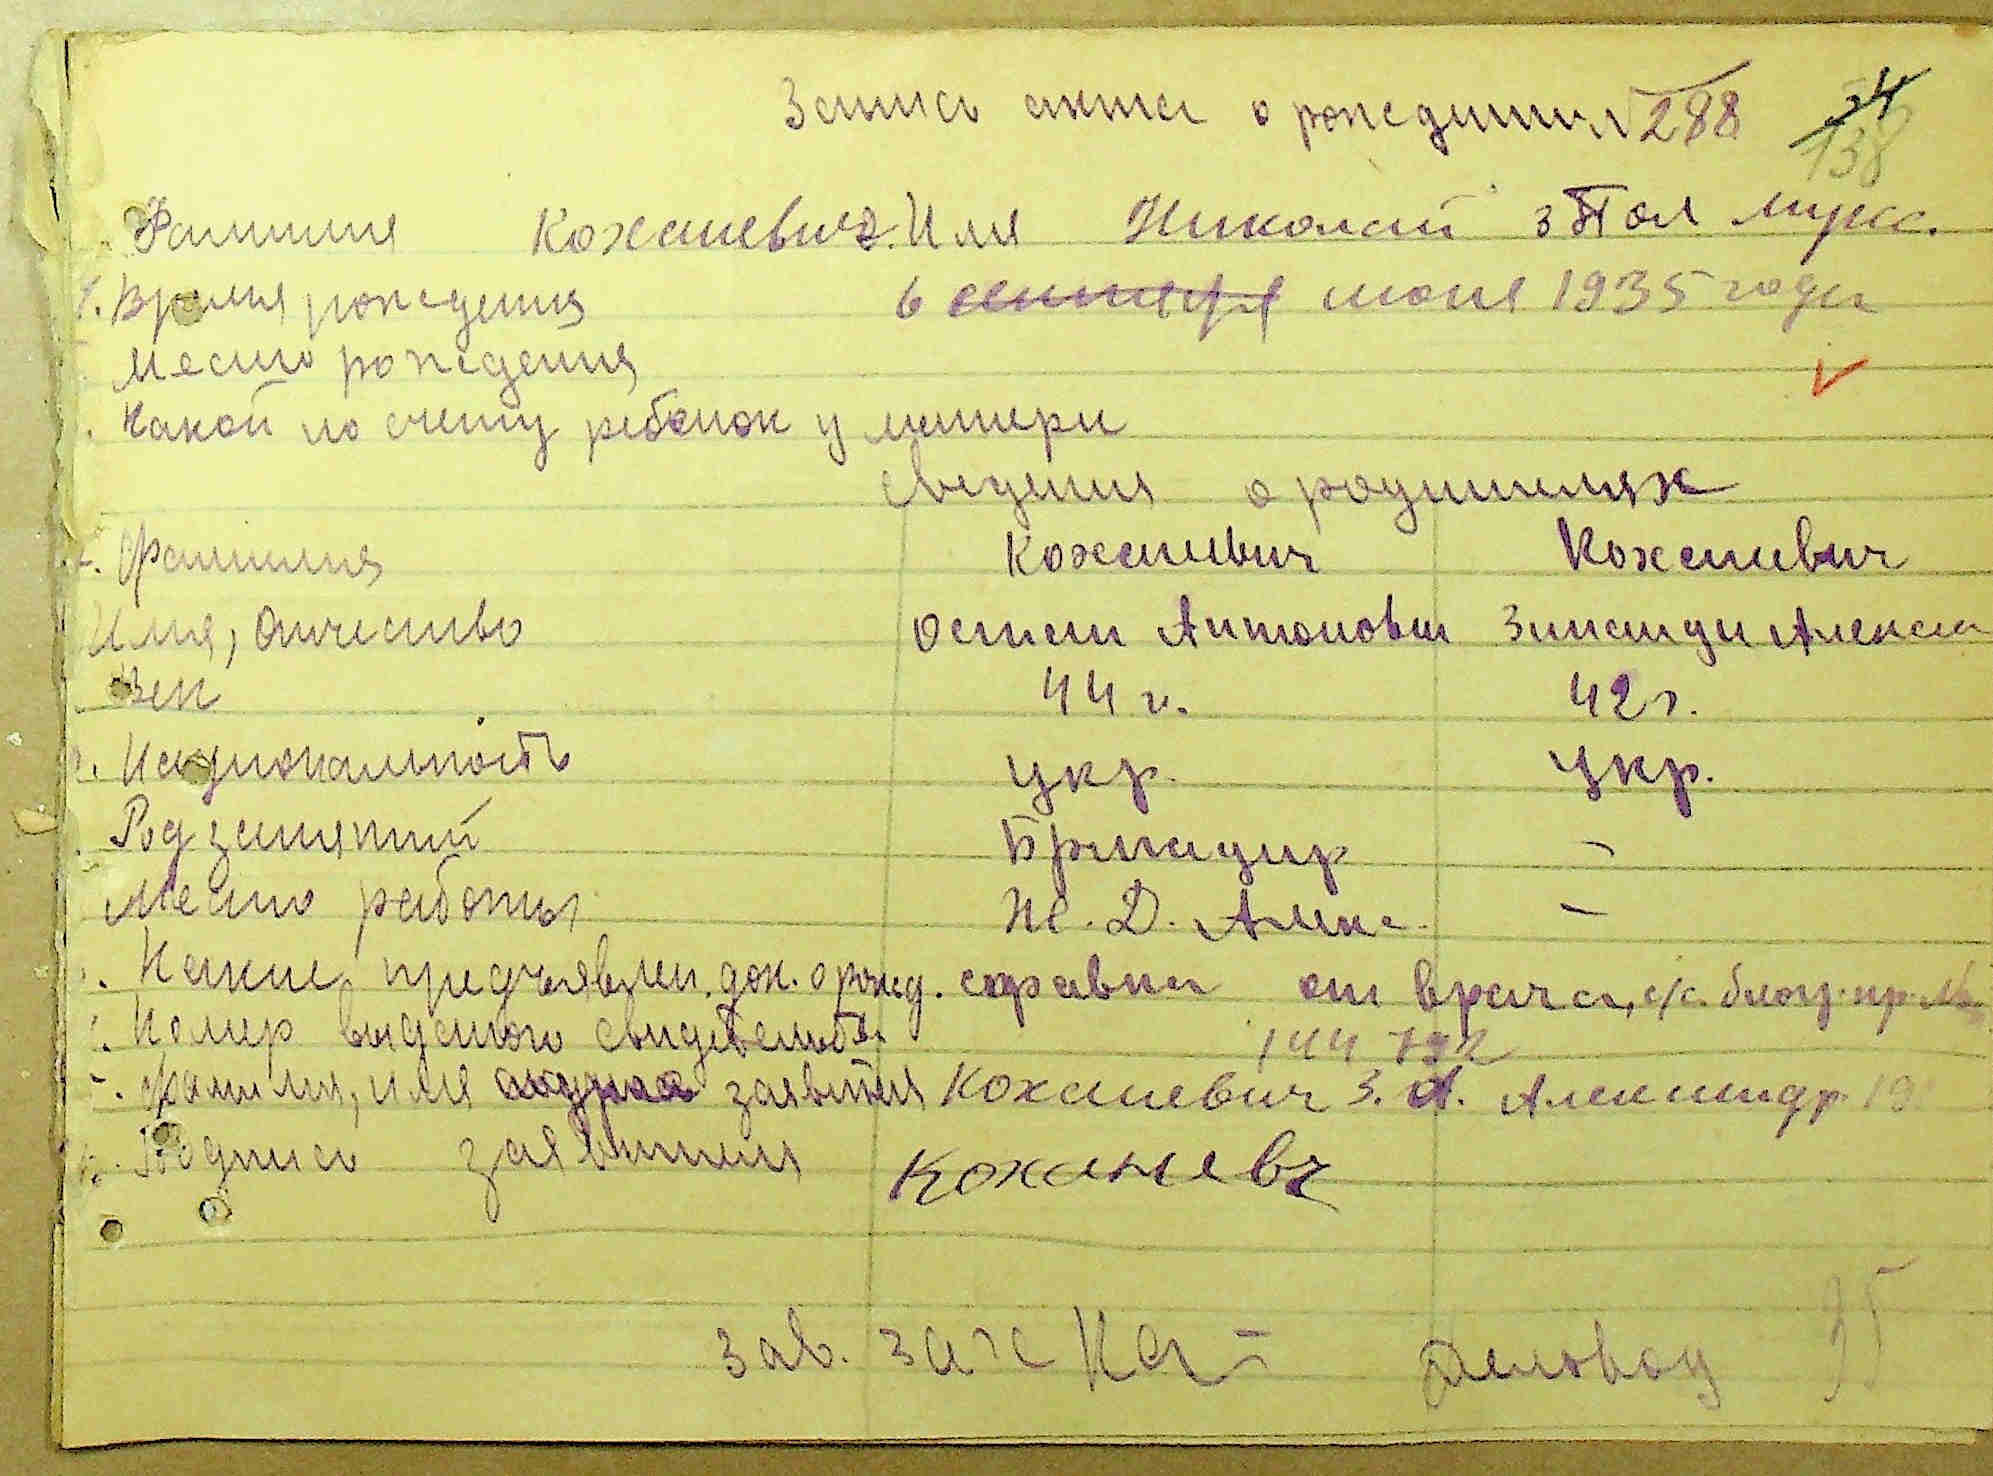 Запись акта о рождении № 288 34
138
Фамилия Коханевич 2. Имя Николай 3 Пол мужс.
4. Время рождения 6 сентября июня 1935 года
Место рождения
Какой по счету ребенок у матери
Сведения о родителях
Фамилия Коханевич Коханевич
Имя, Отчество Остап Антонович Зинаида Алекса
Век 44 г. 42 г.
Национальность укр. Укр.
Род занятий Бригадир –
Место работы Ж. Д. –
Какие предъявлен. док. о рожд. справка от врача,
Номер выданого свидетельств 144 792
Фамилия, имя адрес заявителя Коханевич З. А. Александр. 19
Подпись заявителя Коханевч
Зав. загс Деловод 35